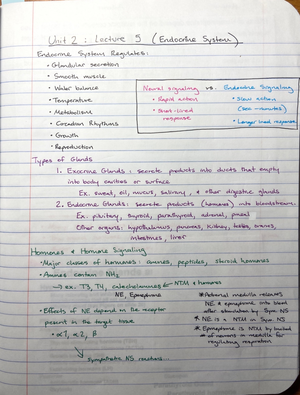 Unit 2 : Lecture 5 (Endocrine System)
Endocrine System Regulates:
• Glandular secretion
• Smooth muscle
• Water balance
• Temperature
• Metabolism
• Circadian Rhythms
• Growth
• Reproduction
Neural signaling vs. Endocrine Signaling
• Rapid action
• Short-lived
response
• Slow action
(sec - minutes)
• Longer lived response
Types of Glands
1. Exocrine Glands : secrete products into ducts that empty
into body cavities or surface
Ex. sweat, oil, mucus, salivary, & other digestive glands
2. Endocrine Glands: secrete products (hormones) into bloodstream
Ex. pituitary, thyroid, parathyroid, adrenal, pineal
Other organs: hypothalamus, pancreas, kidney, testes, ovaries,
intestines, liver
Hormones & Hormone Signalling
• Major classes of hormones : amines, peptides, steroid hormones
• Amines contain NH2
→ ex. T3, T4, catecholamines ← NTM & hormones
NE, Epinephrine
• Effects of NE depend on the receptor
present in the target tissue
• α1, α2, β
Sympathetic NS reactions...
* Adrenal medulla releases
NE & epinephrine into blood
after stimulation by Sym NS
* NE is a NTM in Sym NS
* Epinephrine is NTM by
of neurons in medulla for
regulating respiration